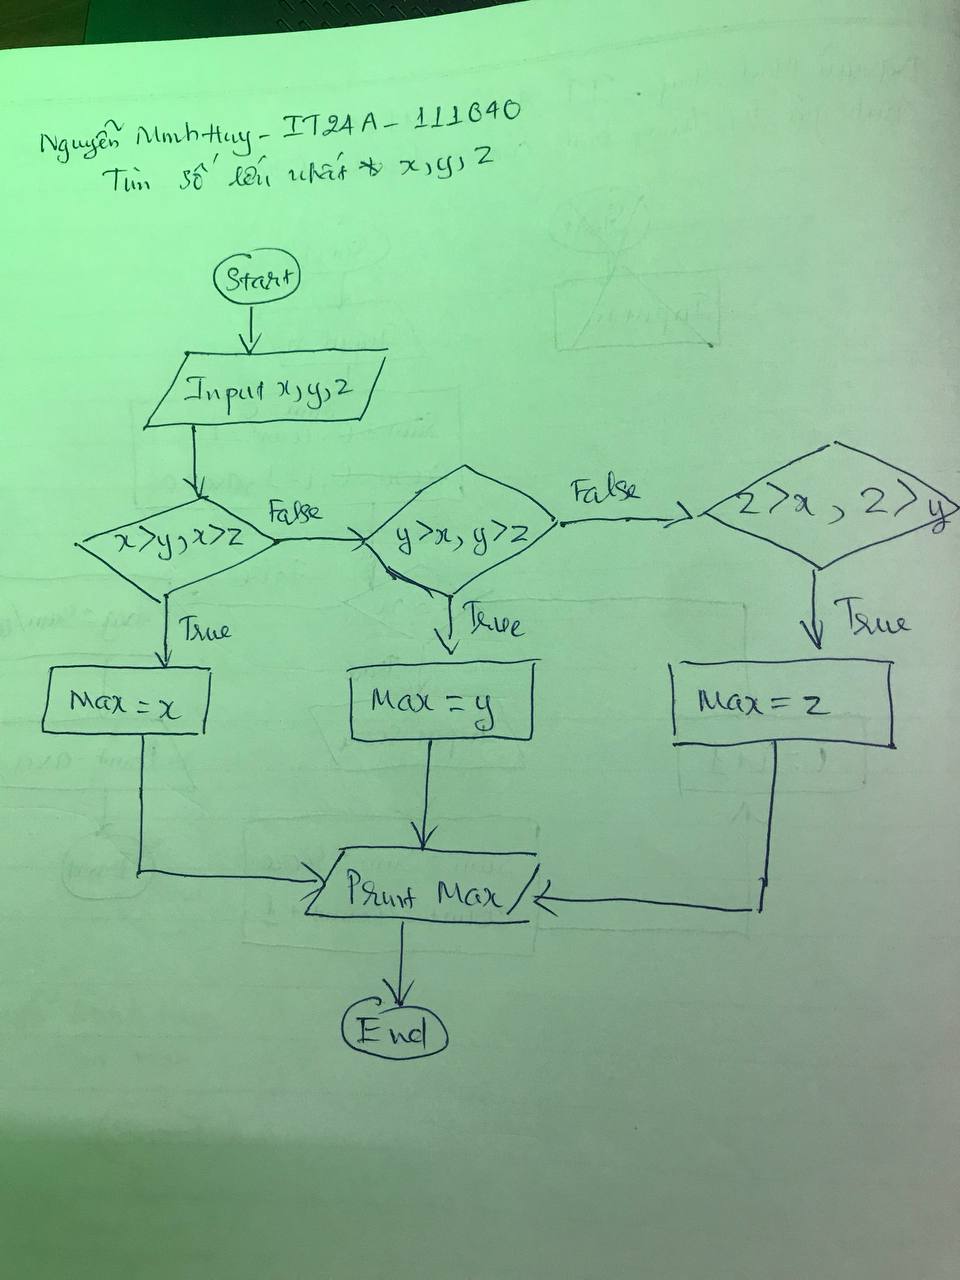 Nguyễn Minh Huy - IT24A - 111640
Tìm số lớn nhất x, y, z
Start
Input x, y, z
x>y, x>z
False
y>x, y>z
False
z>x, z>y
True
True
True
Max = x
Max = y
Max = z
Print Max
End